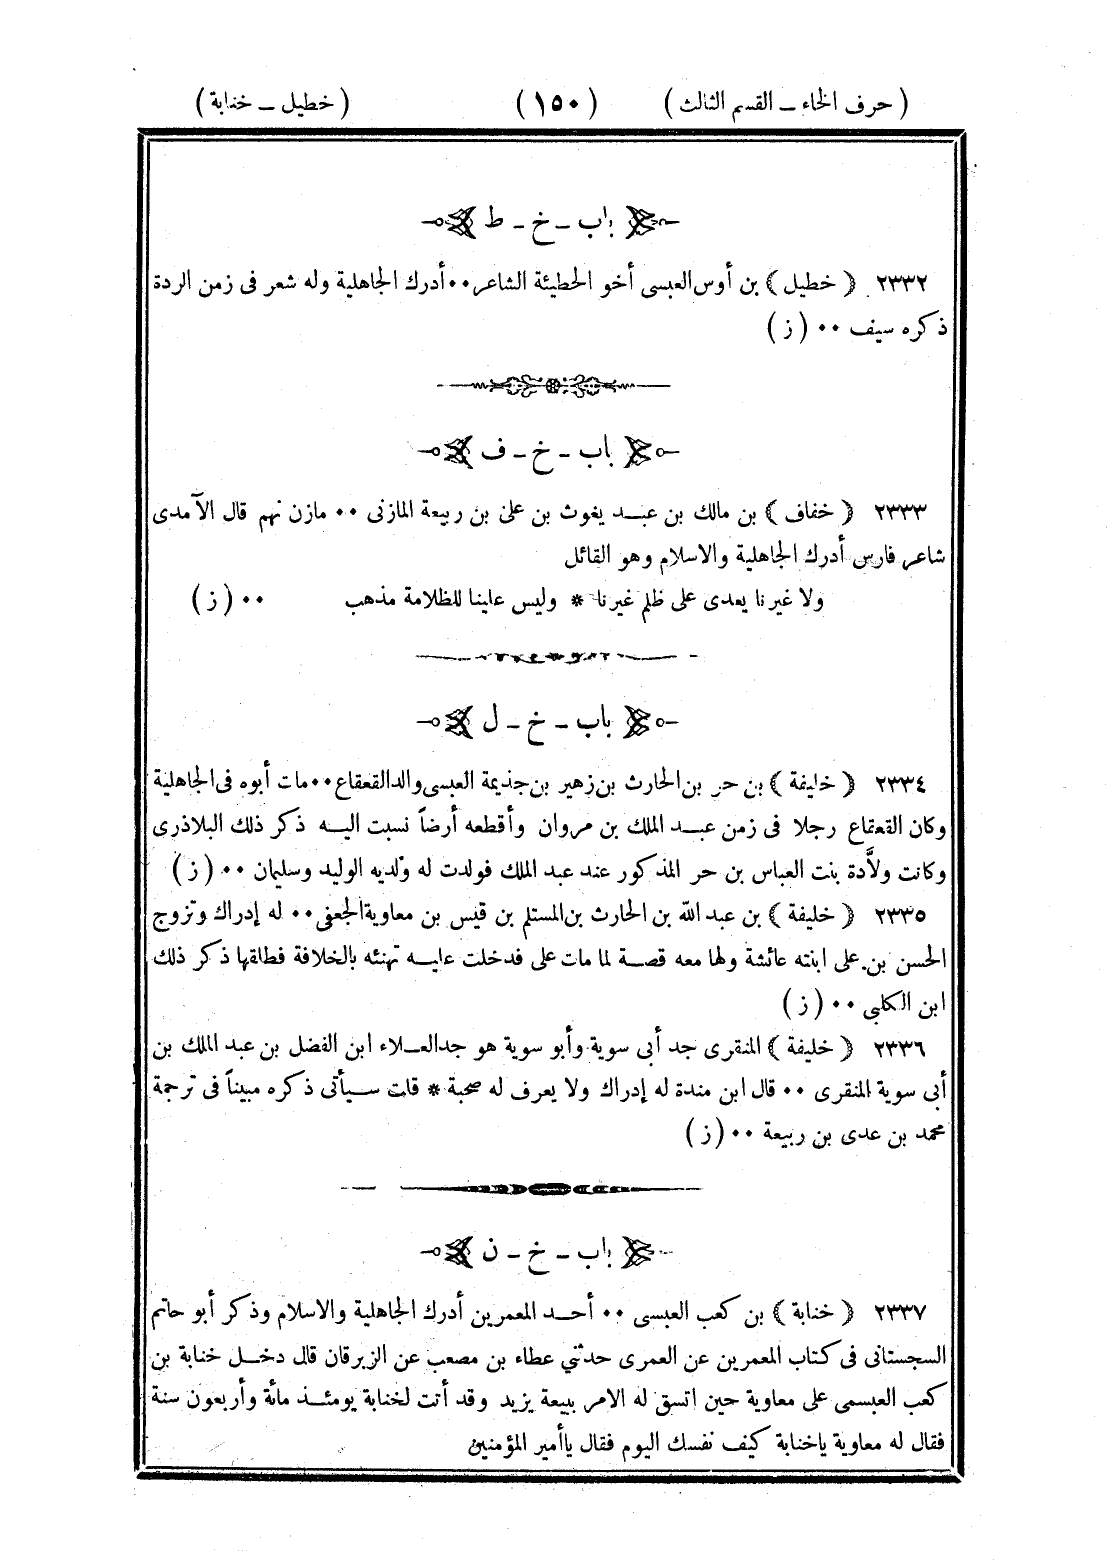 ( حرف الخاء ــ القسم الثالث ) ( ١٥٠ ) ( خطيل ــ خنابة )
باب ـ خ ـ ط
٢٣٣٢ ﴿ خطيل ﴾ بن أوس العبسى أخو الحطيئة الشاعر ٠٠ أدرك الجاهلية وله شعر فى زمن الردة
ذكره سيف ٠٠ ( ز )
باب ـ خ ـ ف
٢٣٣٣ ﴿ خفاف ﴾ بن مالك بن عبد يغوث بن على بن ربيعة المازنى ٠٠ مازن نهم قال الآمدى
شاعر فارس أدرك الجاهلية والاسلام وهو القائل
ولا غيرنا يعدى على ظلم غيرنا * وليس علينا للظلامة مذهب ٠٠ ( ز )
باب ـ خ ـ ل
٢٣٣٤ ﴿ خليفة ﴾ بن حر بن الحارث بن زهير بن جذيمة العبسى والد القعقاع ٠٠ مات أبوه فى الجاهلية
وكان القعقاع رجلا فى زمن عبد الملك بن مروان وأقطعه أرضاً نسبت اليه ذكر ذلك البلاذرى
وكانت ولاَّدة بنت العباس بن حر المذكور عند عبد الملك فولدت له ولديه الوليد وسليمان ٠٠ ( ز )
٢٣٣٥ ﴿ خليفة ﴾ بن عبد الله بن الحارث بن المستلم بن قيس بن معاوية الجعفى ٠٠ له إدراك وتزوج
الحسن بن على ابنته عائشة ولها معه قصة لما مات على فدخلت عليه تهنئه بالخلافة فطلقها ذكر ذلك
ابن الكلبى ٠٠ ( ز )
٢٣٣٦ ﴿ خليفة ﴾ المنقرى جد أبى سوية وأبو سوية هو جد العلاء ابن الفضل بن عبد الملك بن
أبى سوية المنقرى ٠٠ قال ابن مندة له إدراك ولا يعرف له صحبة * قلت سيأتى ذكره مبيناً فى ترجمة
محمد بن عدى بن ربيعة ٠٠ ( ز )
باب ـ خ ـ ن
٢٣٣٧ ﴿ خنابة ﴾ بن كعب العبسى ٠٠ أحد المعمرين أدرك الجاهلية والاسلام وذكر أبو حاتم
السجستانى فى كتاب المعمرين عن العمرى حدثني عطاء بن مصعب عن الزبرقان قال دخل خنابة بن
كعب العبسمى على معاوية حين اتسق له الامر ببيعة يزيد وقد أتت لخنابة يومئذ مائة وأربعون سنة
فقال له معاوية ياخنابة كيف نفسك اليوم فقال ياأمير المؤمنين